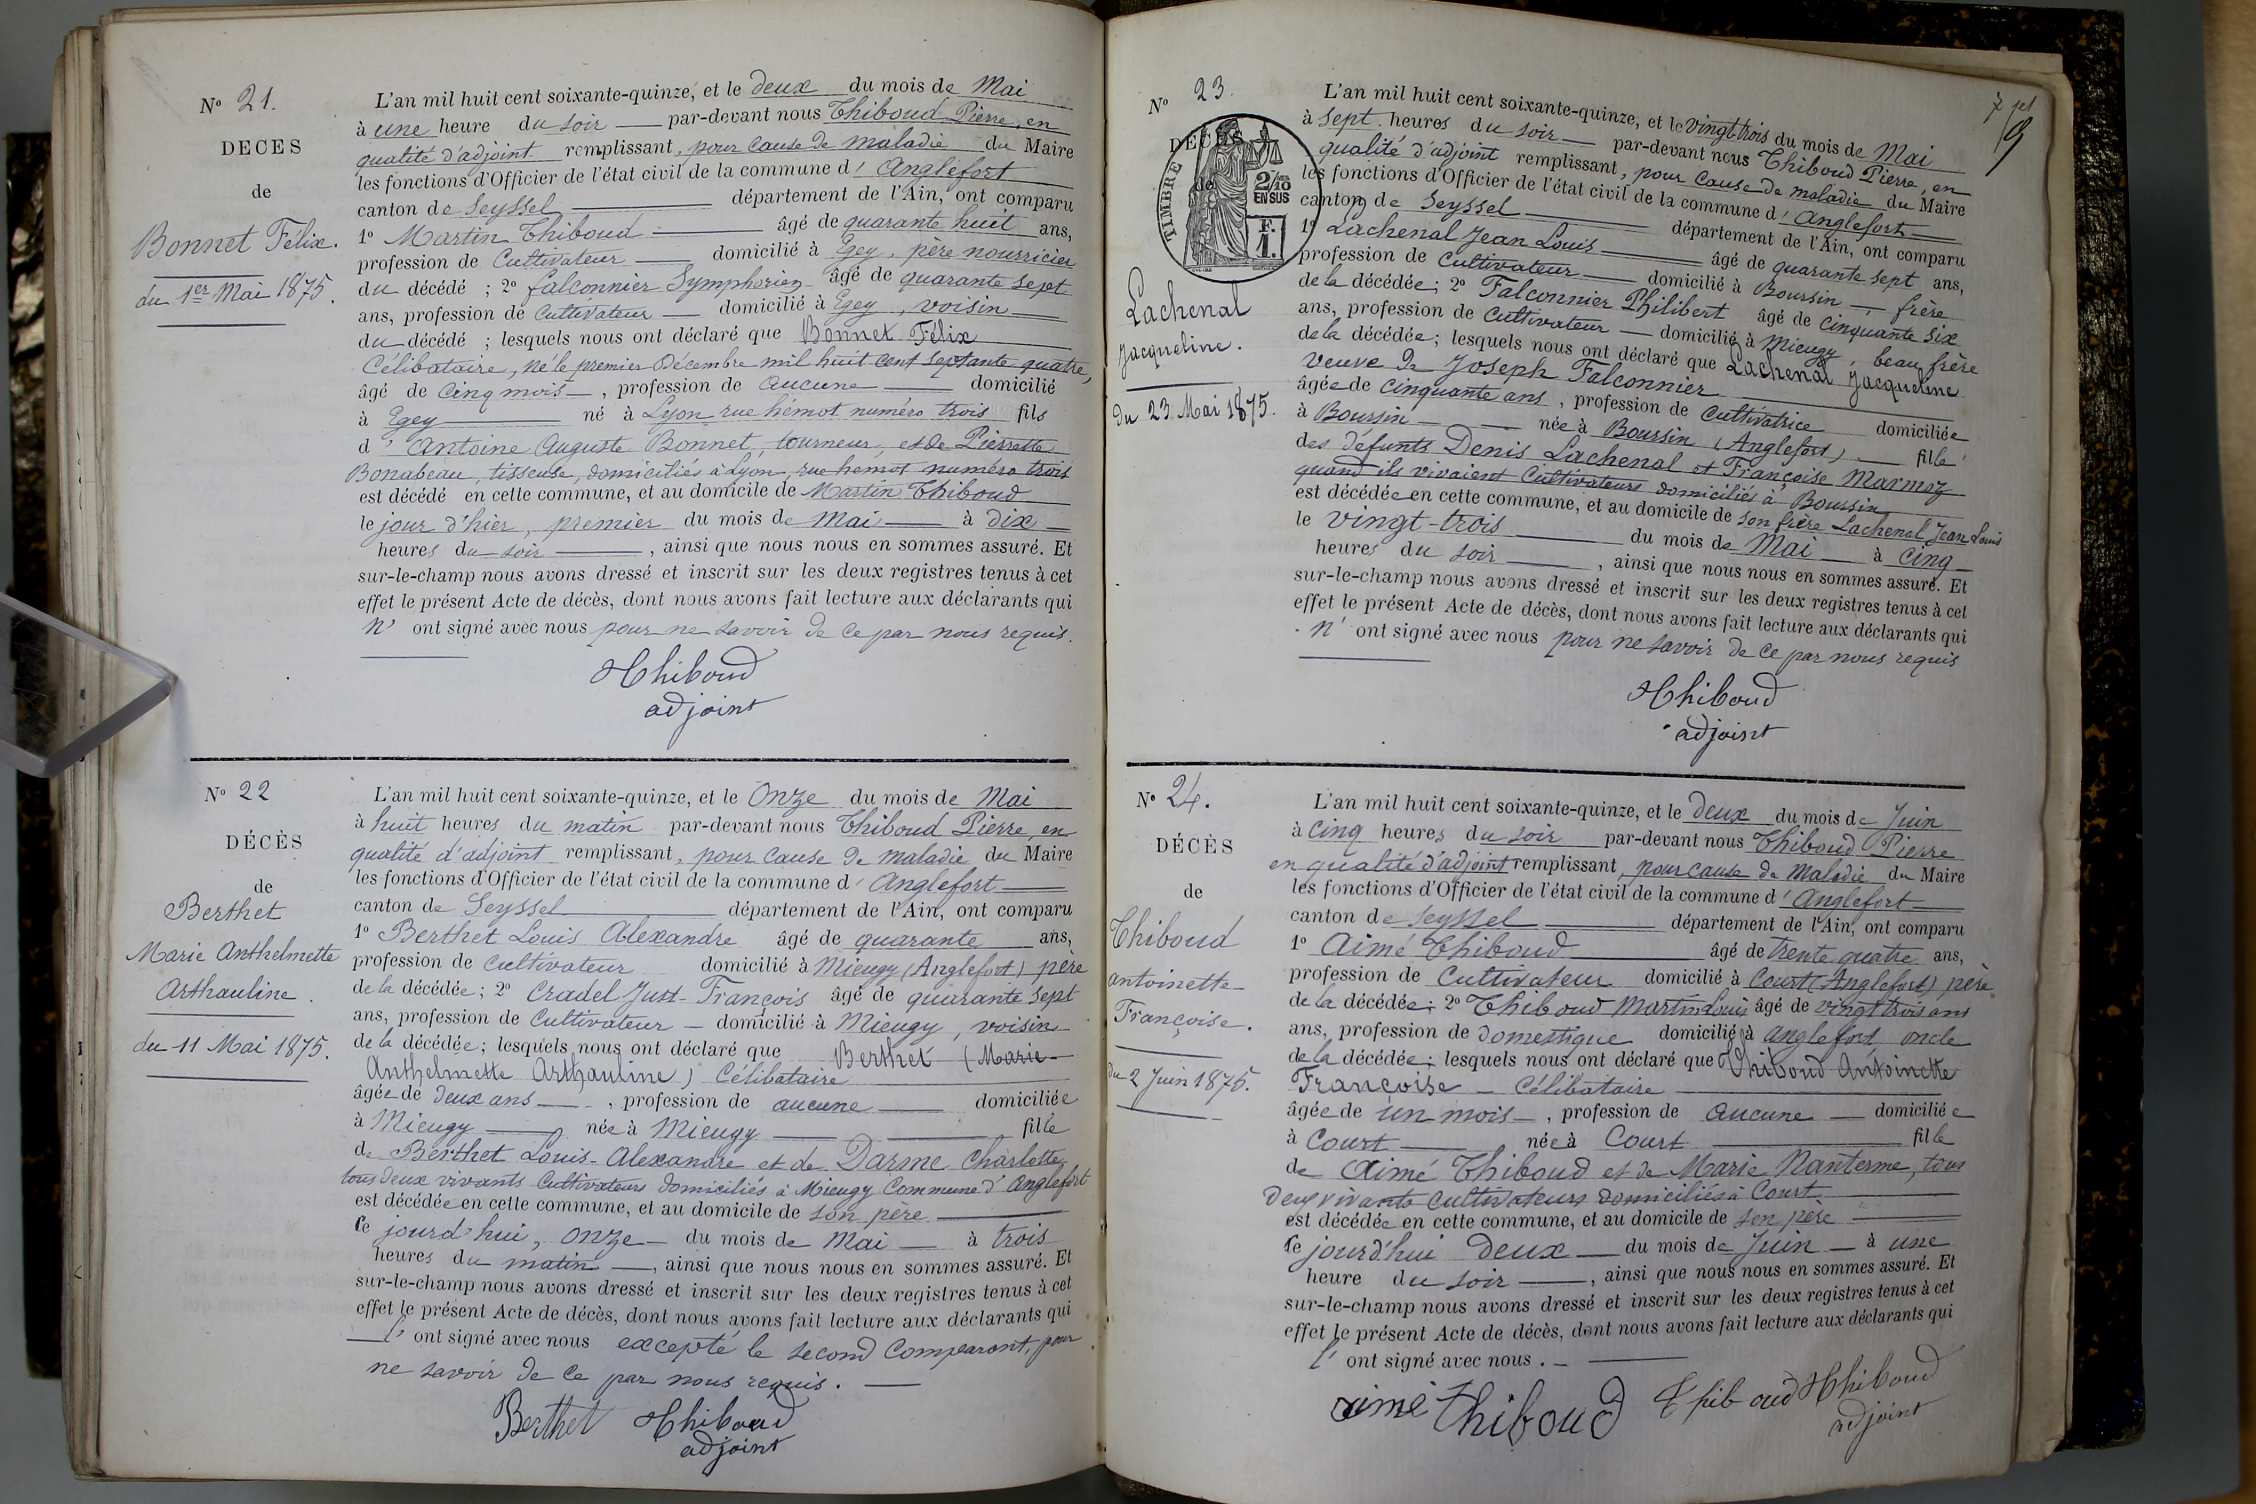 N° 21.
DECES
de
Bonnet Félix.
du 1er Mai 1875.
L'an mil huit cent soixante-quinze, et le deux du mois de Mai
à une heure du soir par-devant nous Thiboud Pierre, en
qualité d'adjoint remplissant, pour cause de maladie du Maire
les fonctions d'Officier de l'état civil de la commune d'Anglefort
canton de Seyssel département de l'Ain, ont comparu
1° Martin Thiboud âgé de quarante huit ans,
profession de Cultivateur domicilié à Egey, père nourricier
du décédé ; 2° falconnier Symphorien âgé de quarante sept
ans, profession de Cultivateur domicilié à Egey, voisin
du décédé ; lesquels nous ont déclaré que Bonnet Félix
Célibataire, né le premier Décembre mil huit cent septante quatre,
âgé de Cinq mois , profession de aucune domicilié
à Egey né à Lyon rue hémot numéro trois fils
d' Antoine Auguste Bonnet, tourneur, et de Pierrette
Bonabeau, tisseuse, domiciliés à Lyon, rue hemot numéro trois
est décédé en cette commune, et au domicile de Martin Thiboud
le jour d'hier, premier du mois de Mai à dix
heures du soir , ainsi que nous nous en sommes assuré. Et
sur-le-champ nous avons dressé et inscrit sur les deux registres tenus à cet
effet le présent Acte de décès, dont nous avons fait lecture aux déclarants qui
n' ont signé avec nous pour ne savoir de ce par nous requis.
Thiboud
adjoint
N° 22
DÉCÈS
de
Berthet
Marie Anthelmette
Arthauline.
du 11 Mai 1875.
L'an mil huit cent soixante-quinze, et le Onze du mois de Mai
à huit heures du matin par-devant nous Thiboud Pierre, en
qualité d'adjoint remplissant, pour cause de maladie du Maire
les fonctions d'Officier de l'état civil de la commune d'Anglefort
canton de Seyssel département de l'Ain, ont comparu
1° Berthet Louis Alexandre âgé de quarante ans,
profession de Cultivateur domicilié à Mieugy (Anglefort) père
de la décédée; 2° Cradel Just-François âgé de quarante sept
ans, profession de Cultivateur domicilié à Mieugy, voisin
de la décédée; lesquels nous ont déclaré que Berthet (Marie
Anthelmette Arthauline) Célibataire
âgée de deux ans , profession de aucune domiciliée
à Mieugy née à Mieugy fille
de Berthet Louis-Alexandre et de Darme Charlotte,
tous deux vivants Cultivateurs domiciliés à Mieugy Commune d'Anglefort
est décédée en cette commune, et au domicile de son père
le jourd'hui, onze du mois de Mai à trois
heures du matin , ainsi que nous nous en sommes assuré. Et
sur-le-champ nous avons dressé et inscrit sur les deux registres tenus à cet
effet le présent Acte de décès, dont nous avons fait lecture aux déclarants qui
l' ont signé avec nous excepté le second Comparant, pour
ne savoir de ce par nous requis.
Berthet Thiboud
adjoint
N° 23.
DÉCÈS
de
TIMBRE
2/10
EN SUS
F.
1.
Lachenal
Jacqueline.
du 23 Mai 1875.
L'an mil huit cent soixante-quinze, et le vingt trois du mois de Mai
à sept heures du soir par-devant nous Thiboud Pierre, en
qualité d'adjoint remplissant, pour cause de maladie du Maire
les fonctions d'Officier de l'état civil de la commune d'Anglefort
canton de Seyssel département de l'Ain, ont comparu
1° Lachenal Jean Louis âgé de quarante sept ans,
profession de Cultivateur domicilié à Boursin frère
de la décédée; 2° Falconnier Philibert âgé de cinquante six
ans, profession de Cultivateur domicilié à Mieugy, beau frère
de la décédée; lesquels nous ont déclaré que Lachenal Jacqueline
veuve de Joseph Falconnier
âgée de cinquante ans , profession de Cultivatrice domiciliée
à Boursin née à Boursin (Anglefort) fille
des défunts Denis Lachenal et Françoise Marmoz
quand ils vivaient Cultivateurs domiciliés à Boursin
est décédée en cette commune, et au domicile de son frère Lachenal Jean Louis
le vingt-trois du mois de Mai à Cinq
heures du soir , ainsi que nous nous en sommes assuré. Et
sur-le-champ nous avons dressé et inscrit sur les deux registres tenus à cet
effet le présent Acte de décès, dont nous avons fait lecture aux déclarants qui
n' ont signé avec nous pour ne savoir de ce par nous requis
Thiboud
adjoint
N° 24.
DÉCÈS
de
Thiboud
Antoinette
Françoise.
du 2 Juin 1875.
L'an mil huit cent soixante-quinze, et le deux du mois de Juin
à cinq heures du soir par-devant nous Thiboud Pierre
en qualité d'adjoint remplissant, pour cause de maladie du Maire
les fonctions d'Officier de l'état civil de la commune d'Anglefort
canton de Seyssel département de l'Ain, ont comparu
1° Aimé Thiboud âgé de trente quatre ans,
profession de Cultivateur domicilié à Court (Anglefort) père
de la décédée; 2° Thiboud Martin Louis âgé de vingt trois ans
ans, profession de domestique domicilié à Anglefort, oncle
de la décédée; lesquels nous ont déclaré que Thiboud Antoinette
Françoise Célibataire
âgée de un mois , profession de aucune domiciliée
à Court née à Court fille
de Aimé Thiboud et de Marie Nanterme, tous
deux vivants Cultivateurs domiciliés à Court
est décédée en cette commune, et au domicile de son père
le jourd'hui deux du mois de Juin à une
heure du soir , ainsi que nous nous en sommes assuré. Et
sur-le-champ nous avons dressé et inscrit sur les deux registres tenus à cet
effet le présent Acte de décès, dont nous avons fait lecture aux déclarants qui
l' ont signé avec nous.
aimé Thiboud Thiboud Thiboud
adjoint